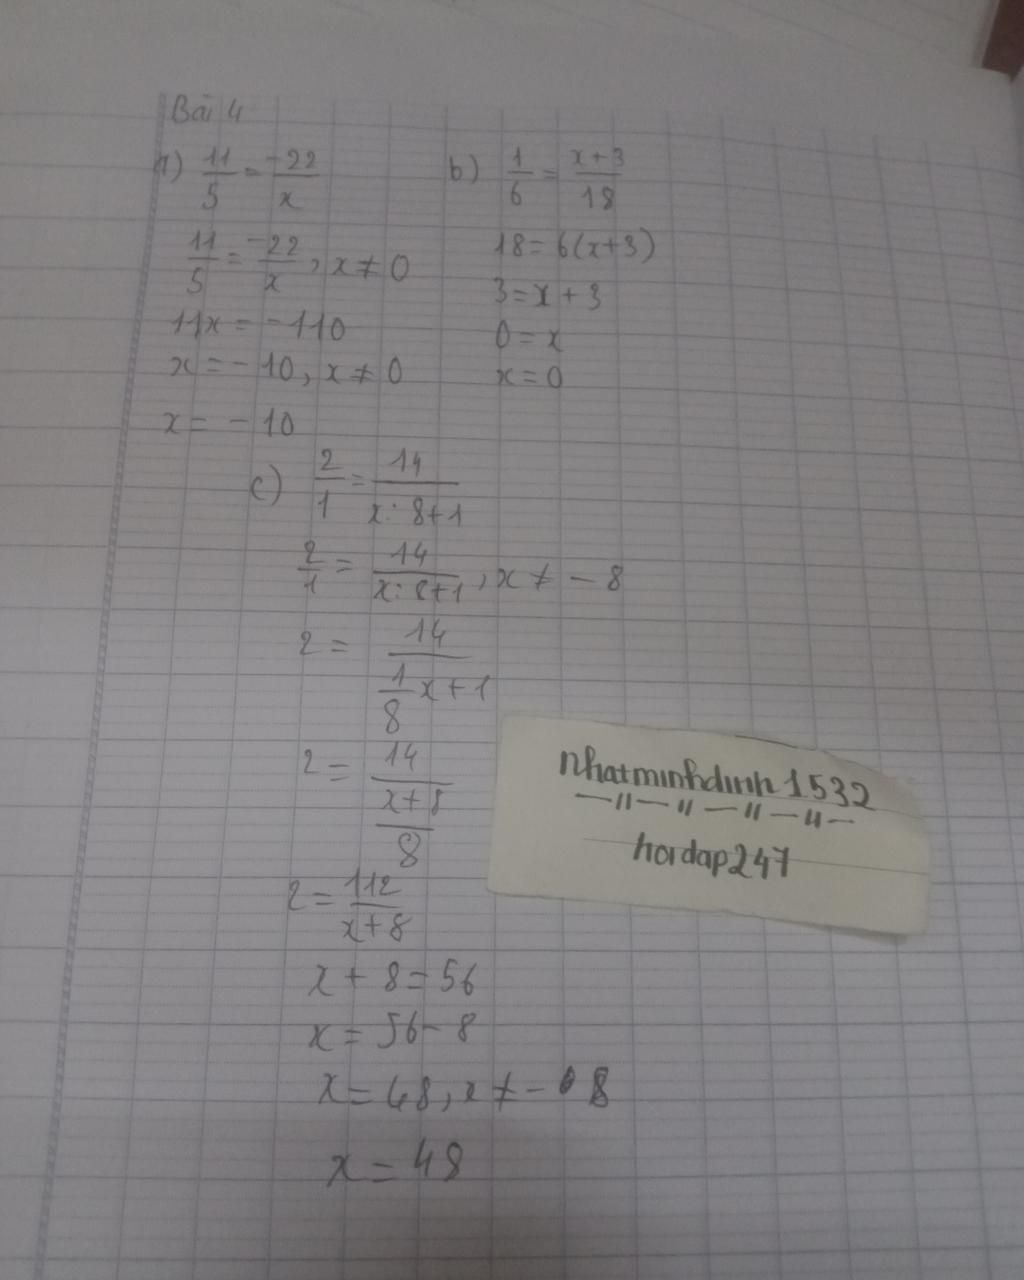 Bài 4
a) 11/5 = -22/x
11/5 = -22/x, x ≠ 0
11x = -110
x = -10, x ≠ 0
x = -10
b) 1/6 = x+3/18
18 = 6(x+3)
3 = x + 3
0 = x
x = 0
c) 2/1 = 14/x: 8+1
2/1 = 14/x: 8+1, x ≠ -8
2 = 14/1/8 x + 1
2 = 14/x+8/8
2 = 112/x+8
x + 8 = 56
x = 56 - 8
x = 48, x ≠ - 8
x = 48
nhatminhdinh1532
hoidap247